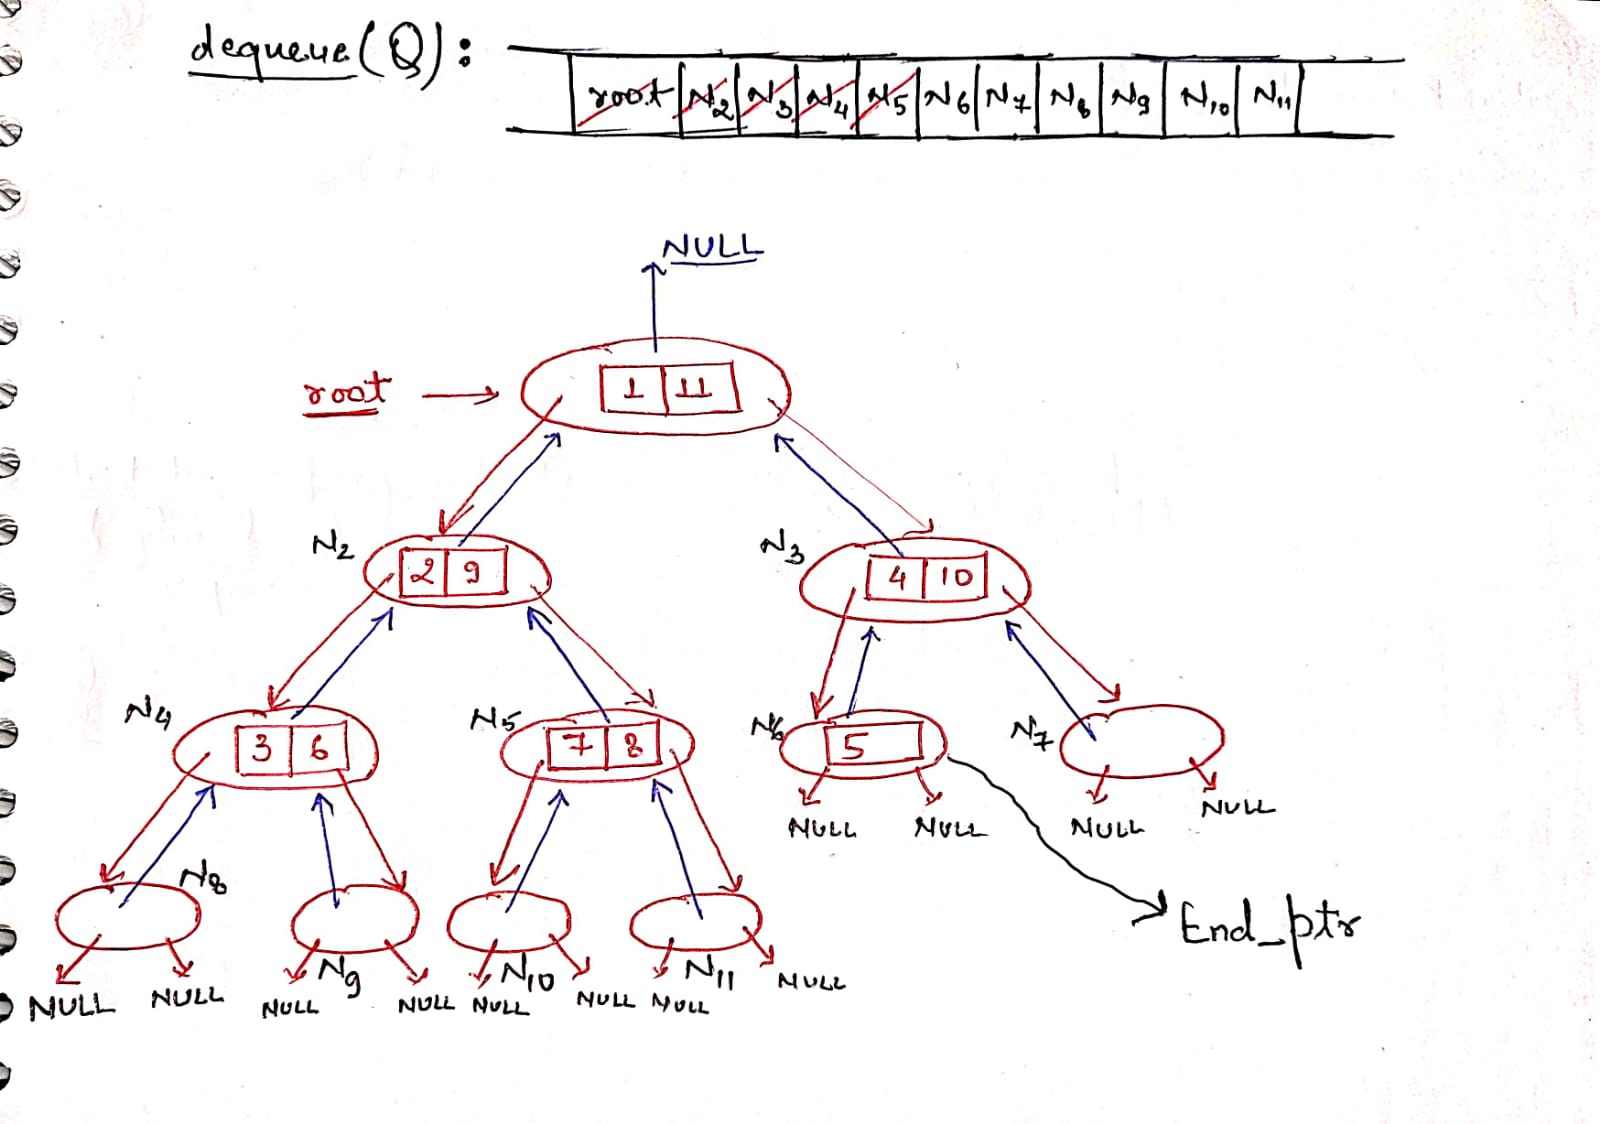 dequeue(Q): root N2 N3 N4 N5 N6 N7 N8 N9 N10 N11
NULL
root 1 11
N2 2 9 N3 4 10
N4 3 6 N5 7 8 N6 5 N7
NULL NULL NULL NULL
N8
End_ptr
N9 N10 N11
NULL NULL NULL NULL NULL NULL NULL NULL